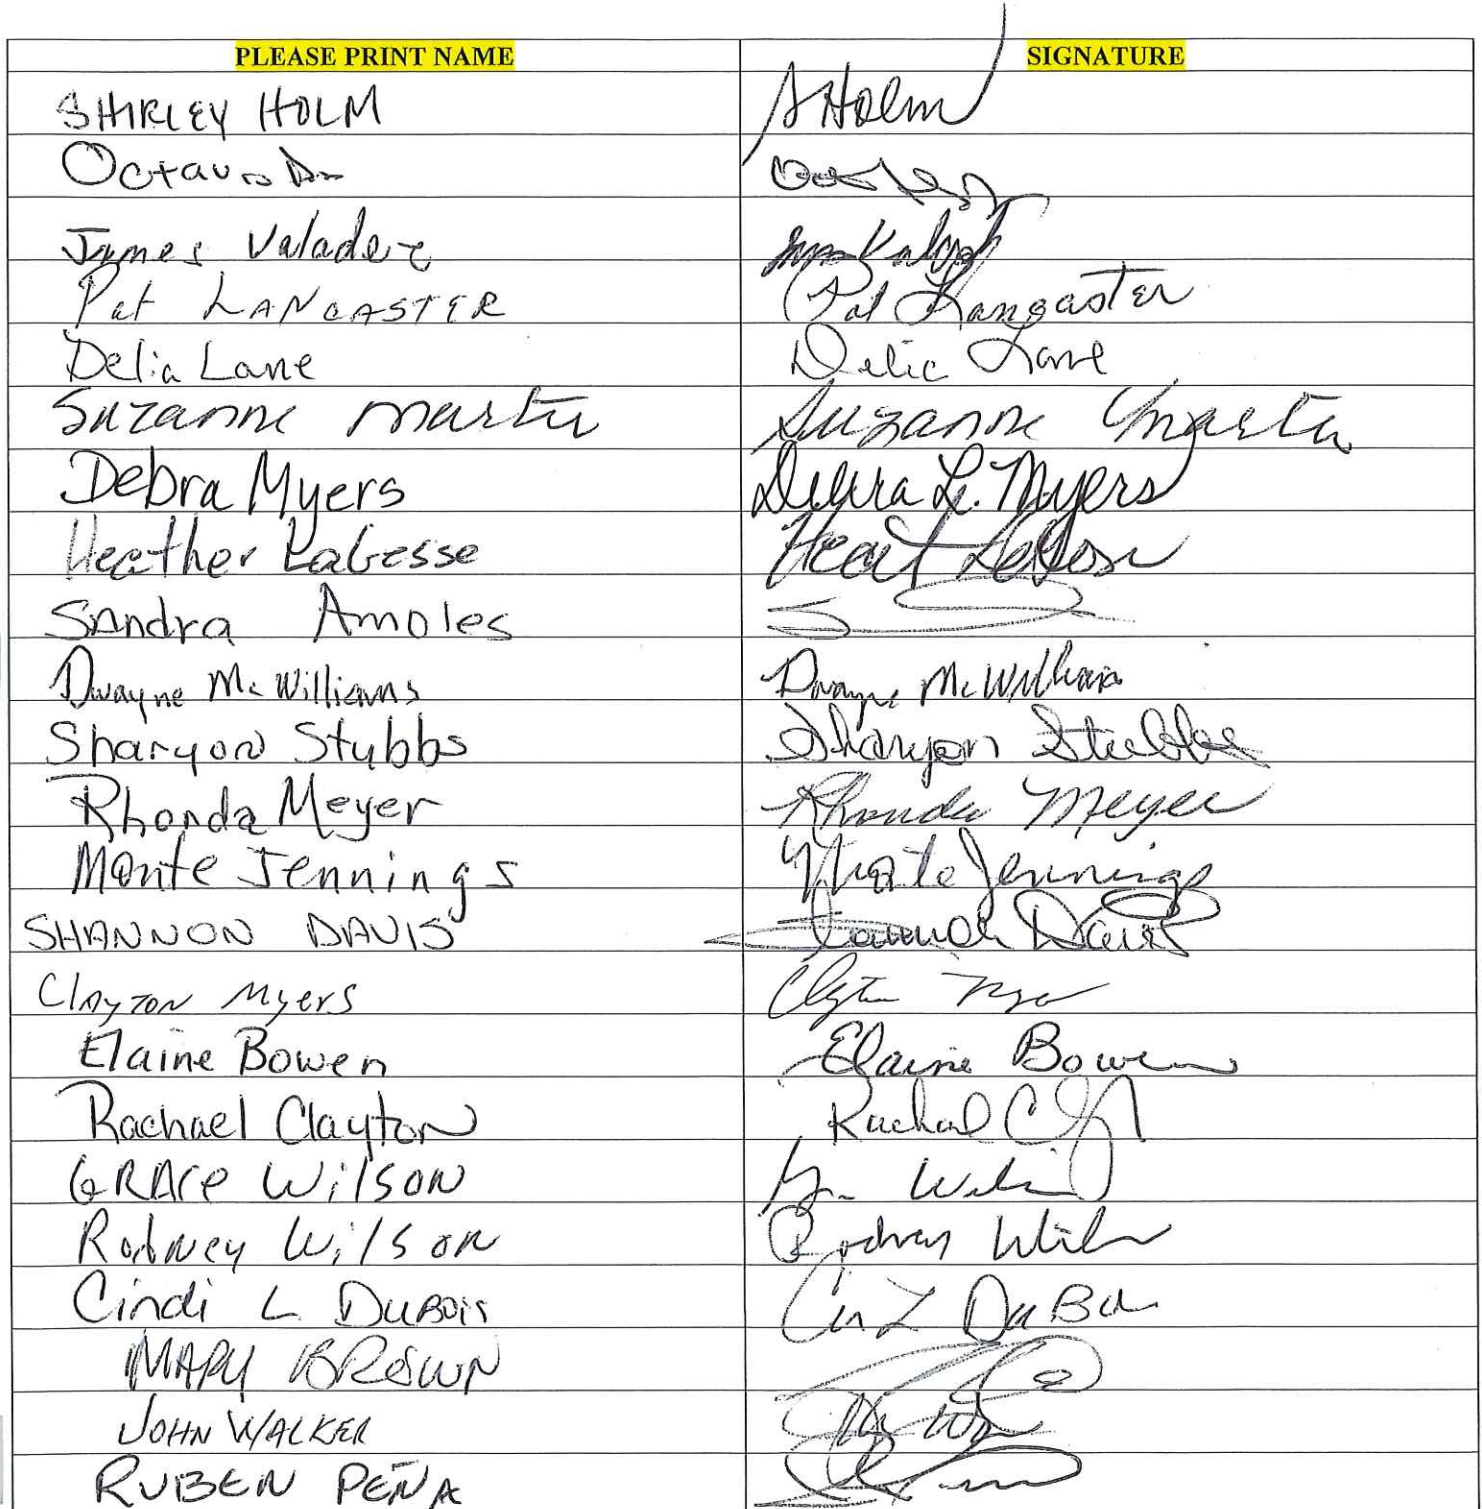 PLEASE PRINT NAME SIGNATURE
SHIRLEY HOLM SHolm
Octavio
James Valadez
Pat LANCASTER Pat Lancaster
Delia Lane Delia Lane
Suzanne Martin Suzanne Martin
Debra Myers Debra L. Myers
Heather LaBesse
Sandra Amoles
Dwayne McWilliams Dwayne McWilliams
Sharyon Stubbs Sharyon Stubbs
Rhonda Meyer Rhonda Meyer
Monte Jennings Monte Jennings
SHANNON DAVIS Shannon Davis
Clayton Myers
Elaine Bowen Elaine Bowen
Rachael Clayton Rachael
GRACE WilsoN
Rodney Wilson Rodney
Cindi L DuBois
MARY BROWN
JOHN WALKER
RUBEN PEÑA